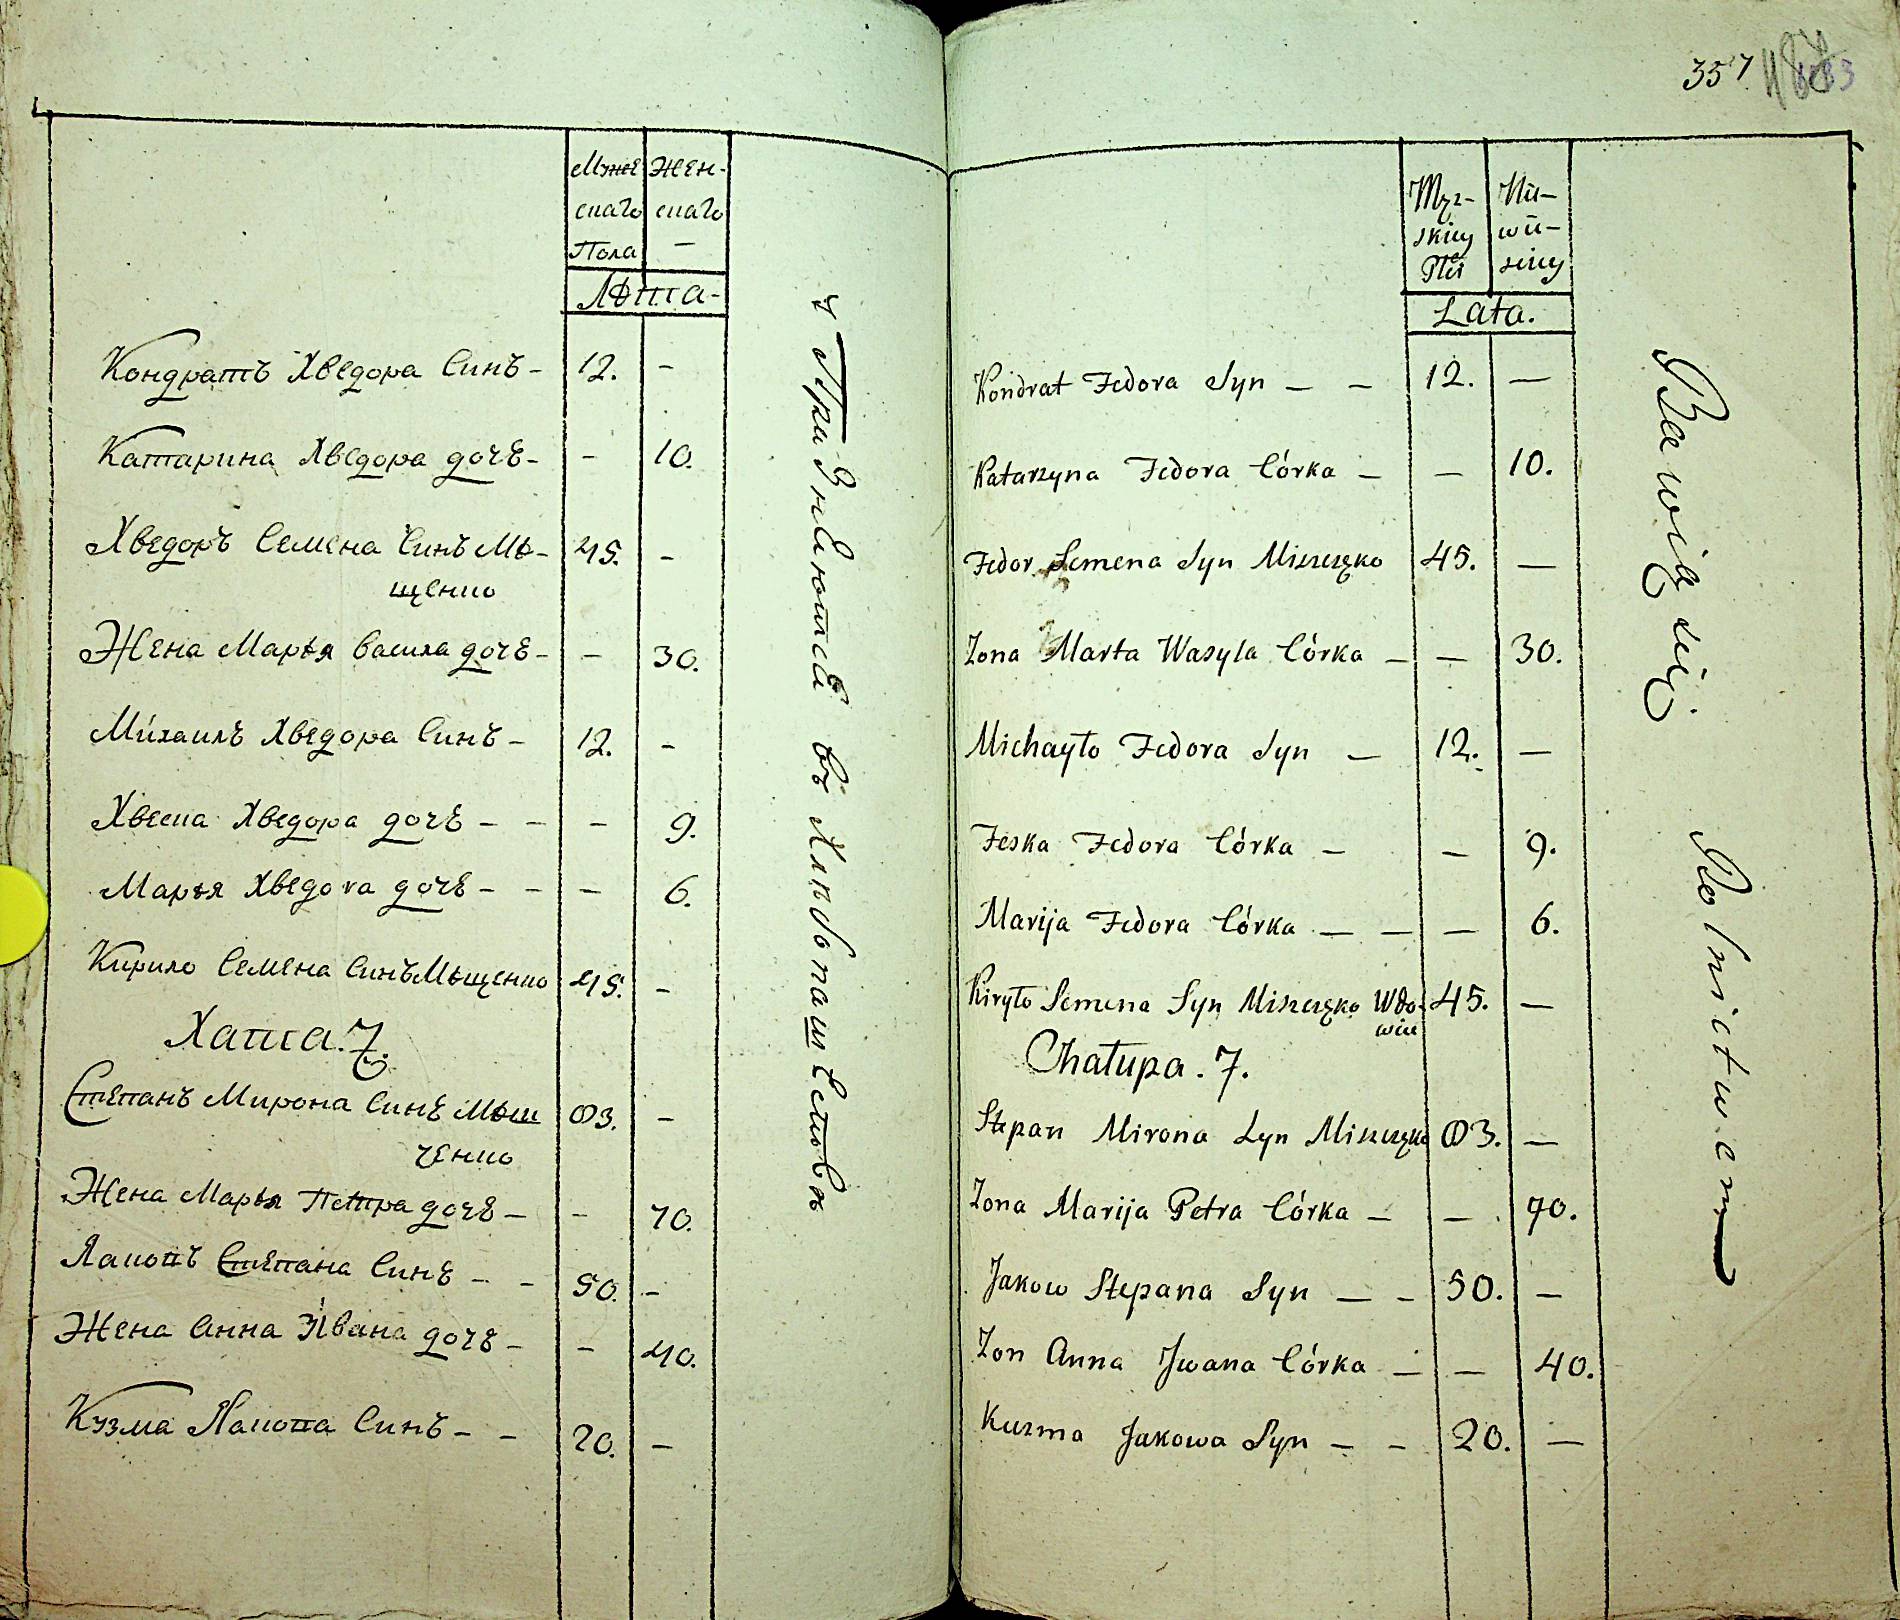 Муже Жен-
скаго скаго
Пола —
Лѣта-
Кондратъ Хведора Синъ - 12. -
Катарина Хведора дочь - - 10.
Хведоръ Семена Синъ Мѣ- 45. -
щенко
Жена Марья Василя дочь - - 30.
Михаилъ Хведора Синъ - 12. -
Хвеска Хведора дочь - - - 9.
Марья Хведора дочь - - - 6.
Кирило Семена Синъ Мѣщенко 45. -
Хата. 7.
Степанъ Мирона Синъ Мѣш 03. -
ченко
Жена Марья Петра дочь - - 70.
Яковъ Степана Синъ - - 50. -
Жена Анна Ивана дочь - - 40.
Кузма Якова Синъ - - 20. -
Упражняются въ хлѣбопашествѣ
357
Męz- Nie-
skiey wie-
Płci sciey
Lata.
Kondrat Fedora Syn — — 12. —
Katarzyna Fedora Córka — — 10.
Fedor Semena Syn Miszczęko 45. —
Zona Marta Wasyla Córka — — 30.
Michayło Fedora Syn — 12. —
Feska Fedora Córka — — 9.
Marija Fedora Córka — — — 6.
Kiryło Semena Syn Miszczęko Wdo- 45. —
wiec
Chałupa. 7.
Stepan Mirona Syn Miszczęko 03. —
Zona Marija Petra Córka — — 70.
Jakow Stepana Syn — - 50. —
Zon Anna Jwana Córka — — 40.
Kuzma Jakowa Syn — - 20. —
Bawią się Rolnictwem